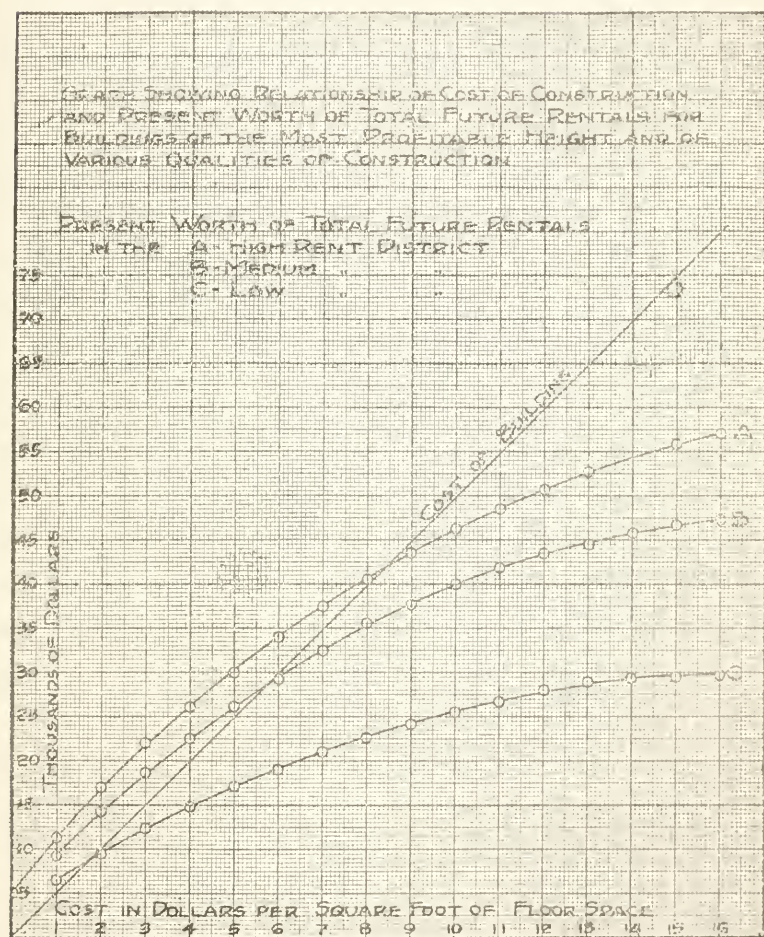 GRAPH SHOWING RELATIONSHIP OF COST OF CONSTRUCTION
AND PRESENT WORTH OF TOTAL FUTURE RENTALS FOR
BUILDINGS OF THE MOST PROFITABLE HEIGHT AND OF
VARIOUS QUALITIES OF CONSTRUCTION
PRESENT WORTH OF TOTAL FUTURE RENTALS
IN THE A - HIGH RENT DISTRICT
B - MEDIUM " "
C - LOW " "
75
70
65
60
55
50
45
40
35
30
25
20
15
10
5
THOUSANDS OF DOLLARS
COST OF BUILDING
A
B
C
COST IN DOLLARS PER SQUARE FOOT OF FLOOR SPACE
1 2 3 4 5 6 7 8 9 10 11 12 13 14 15 16